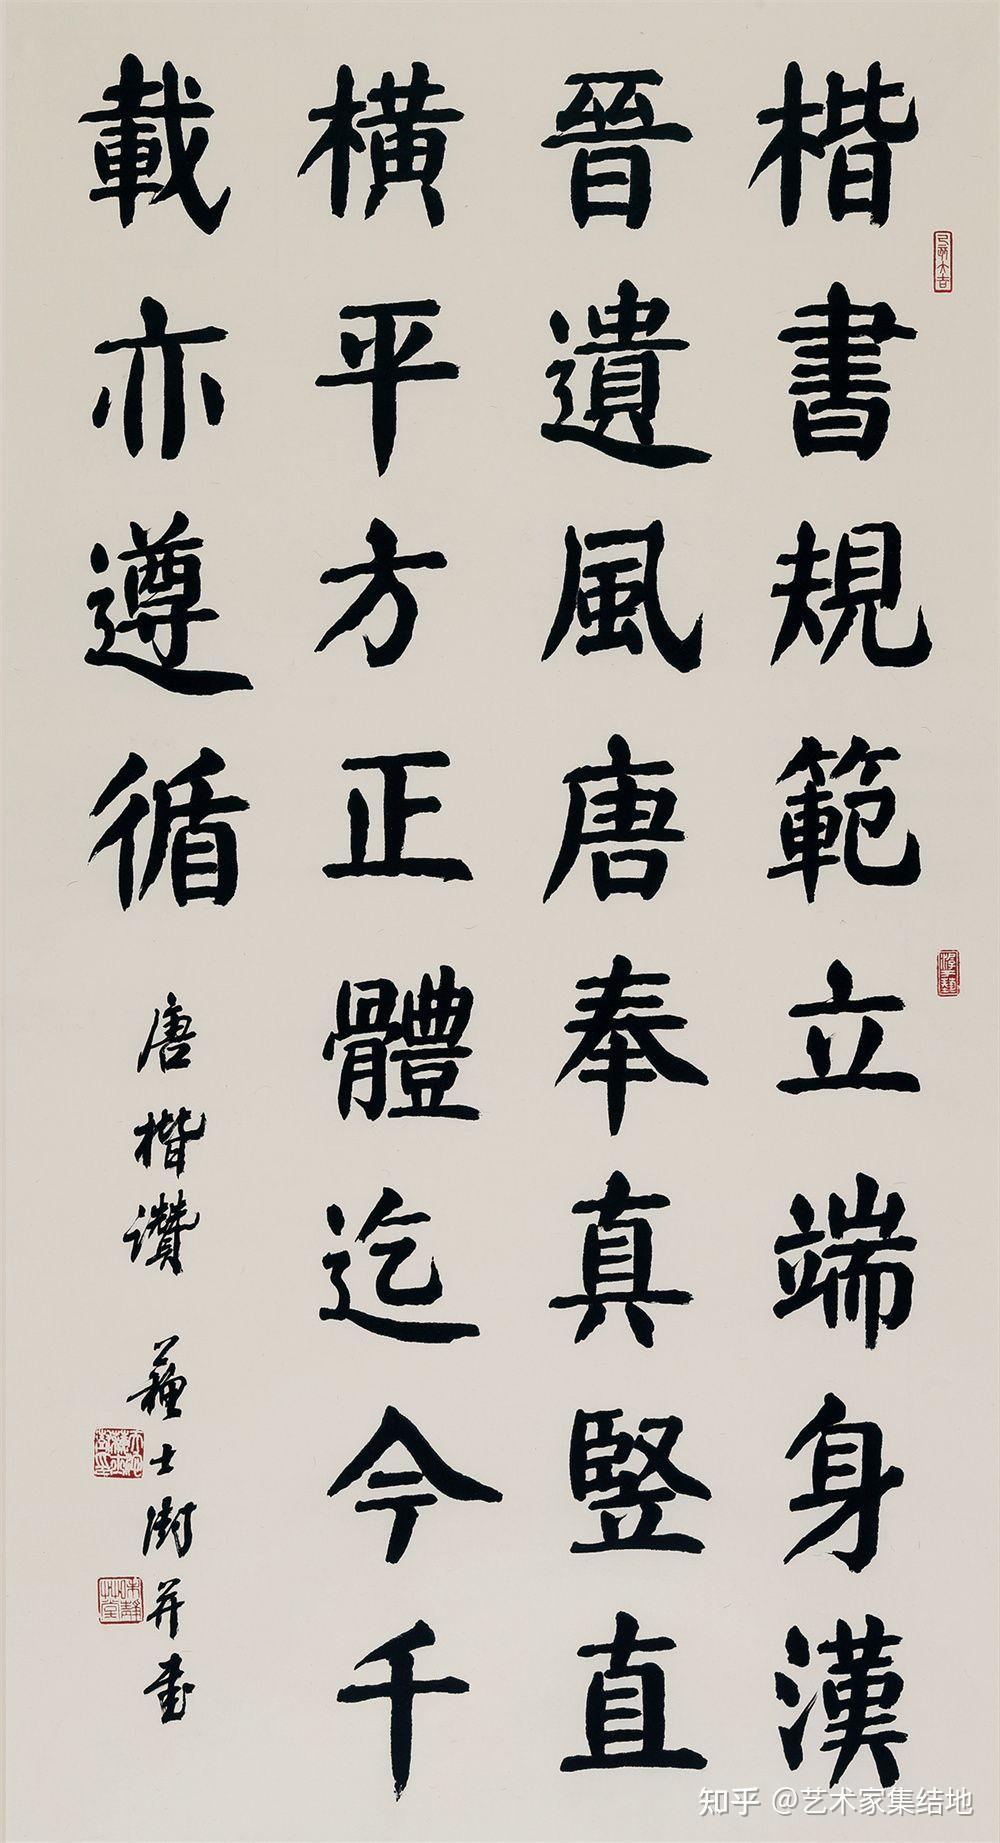 楷書規範立端身漢
晉遺風唐奉真豎直
橫平方正體迄今千
載亦遵循
唐楷讚 蘇士澍并書
知乎 @艺术家集结地